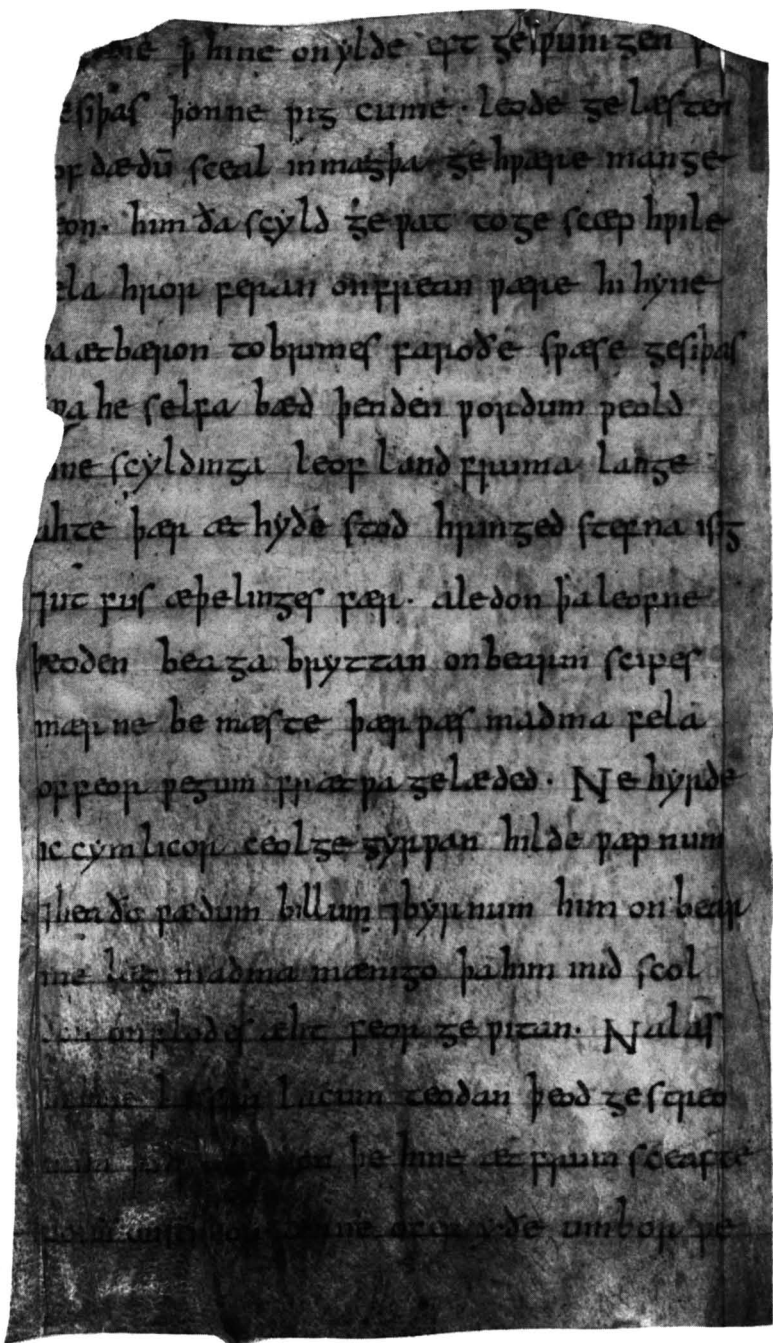 ꝥ hine onylde eft geƿunigen
esiþas þonne ƿig cume · leode ge læsten
of dædū sceal inmægþa ge hƿære man ge
eon· him ða scyld ge ƿat toge scæp hƿile
ela hror feran onfrean ƿære hi hyne
þa ætbæron tobrimes faroðe sƿæse gesiþas
sƿa he selfa bæd þenden ƿordum ƿeold
ine scyldinga leof land fruma lange
ahte þær æt hyðe stod hringed stefna isig
⁊ut fus æþelinges fær· aledon þa leofne
þeoden beaga bryttan onbearm scipes
mær ne be mæste þær ƿæs madma fela
offeor ƿegum frætƿa gelæded· Ne hyrde
ic cymlicor ceolge gyrƿan hilde ƿæp num
⁊heaðo ƿædum billum ⁊byrnum him on bear
me læg madma mænigo þa him mid scol
don onflodes æht feor ge ƿitan· Nalæs
læssan lacum teodan þeod ge streo
þe hine æt frum sceafte
ænne ofer yðe umbor ƿe